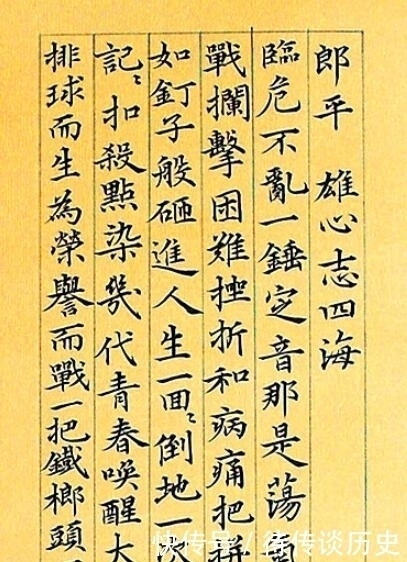 郎平 雄心志四海
臨危不亂一錘定音那是蕩
戰攔擊困難挫折和病痛把拼
如釘子般砸進人生一面〻倒地一次
記〻扣殺點染幾代青春喚醒大
排球而生為榮譽而戰一把鐵榔頭
快传号/待传谈历史